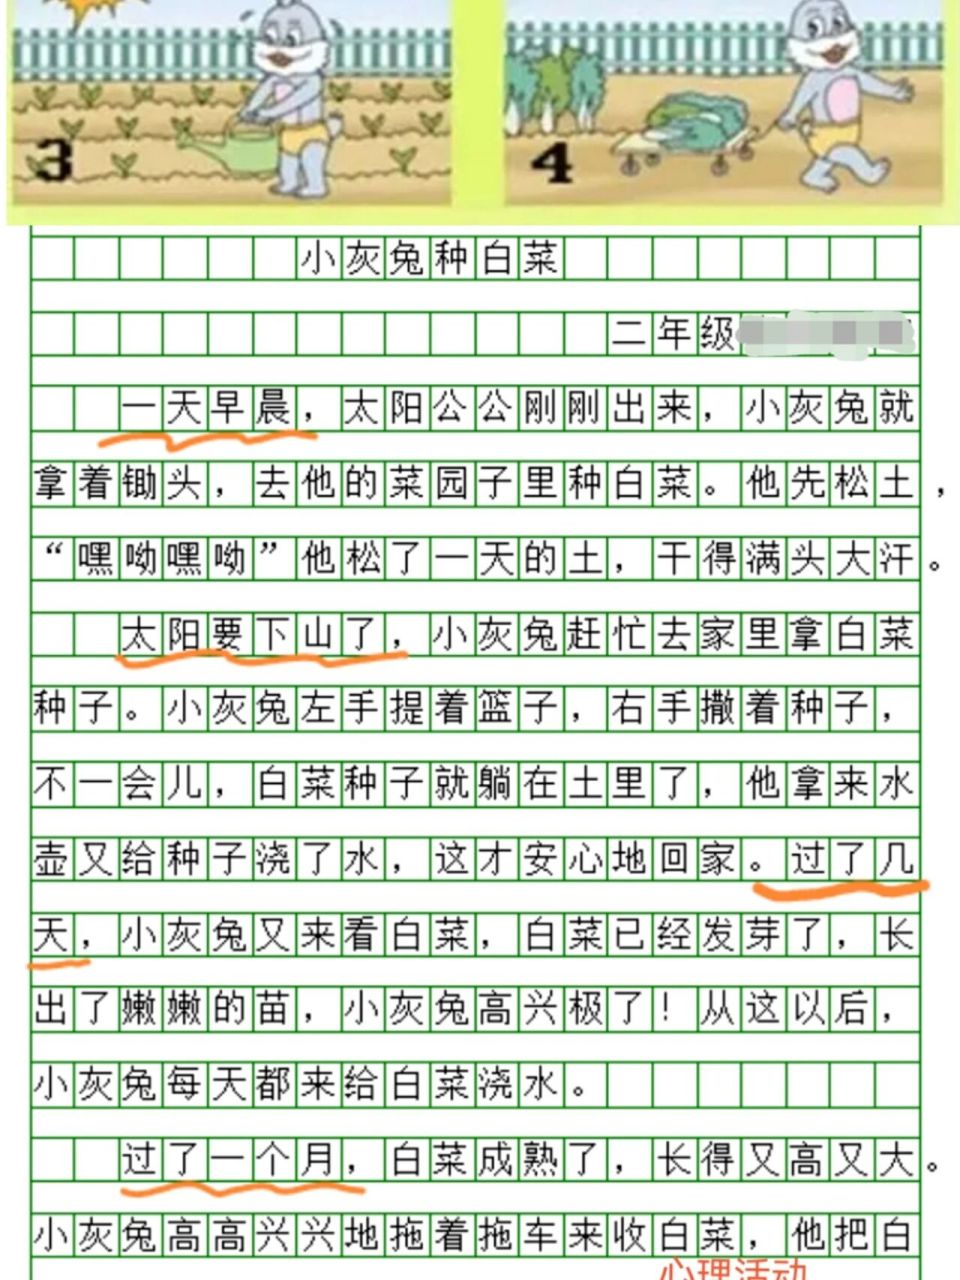 3
4
小灰兔种白菜
二年级
一天早晨，太阳公公刚刚出来，小灰兔就
拿着锄头，去他的菜园子里种白菜。他先松土，
“嘿呦嘿呦”他松了一天的土，干得满头大汗。
太阳要下山了，小灰兔赶忙去家里拿白菜
种子。小灰兔左手提着篮子，右手撒着种子，
不一会儿，白菜种子就躺在土里了，他拿来水
壶又给种子浇了水，这才安心地回家。过了几
天，小灰兔又来看白菜，白菜已经发芽了，长
出了嫩嫩的苗，小灰兔高兴极了！从这以后，
小灰兔每天都来给白菜浇水。
过了一个月，白菜成熟了，长得又高又大。
小灰兔高高兴兴地拖着拖车来收白菜，他把白
心理活动